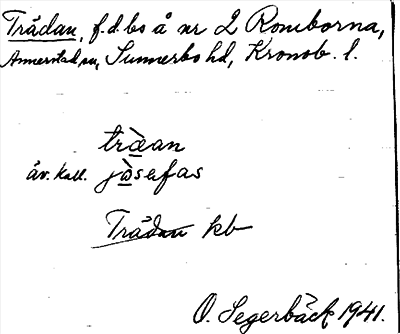 Trådan, f.d. bs å nr 2 Romborna,
Annerstad sn, Sunnerbo hd, Kronob. l.
tràan
äv. kall. jòsefas
Trådan kb
O. Segerbäck 1941.